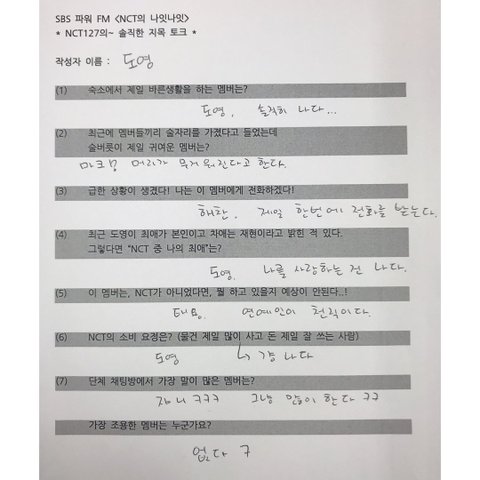 SBS 파워 FM <NCT의 나잇나잇>
* NCT127의~ 솔직한 지목 토크 *
작성자 이름 : 도영
(1) 숙소에서 제일 바른생활을 하는 멤버는?
도영, 솔직히 나다...
(2) 최근에 멤버들끼리 술자리를 가졌다고 들었는데
술버릇이 제일 귀여운 멤버는?
마크 머리가 무거워진다고 한다.
(3) 급한 상황이 생겼다! 나는 이 멤버에게 전화하겠다!
해찬, 제일 한번에 전화를 받는다.
(4) 최근 도영이 최애가 본인이고 차애는 재현이라고 밝힌 적 있다.
그렇다면 "NCT 중 나의 최애"는?
도영. 나를 사랑하는 건 나다.
(5) 이 멤버는, NCT가 아니었다면, 뭘 하고 있을지 예상이 안된다..!
태용. 연예인이 천직이다.
(6) NCT의 소비 요정은? (물건 제일 많이 사고 돈 제일 잘 쓰는 사람)
도영 → 걍 나다
(7) 단체 채팅방에서 가장 말이 많은 멤버는?
쟈니 ㅋㅋㅋ 그냥 많이 한다 ㅋㅋ
가장 조용한 멤버는 누군가요?
없다 ㅋ